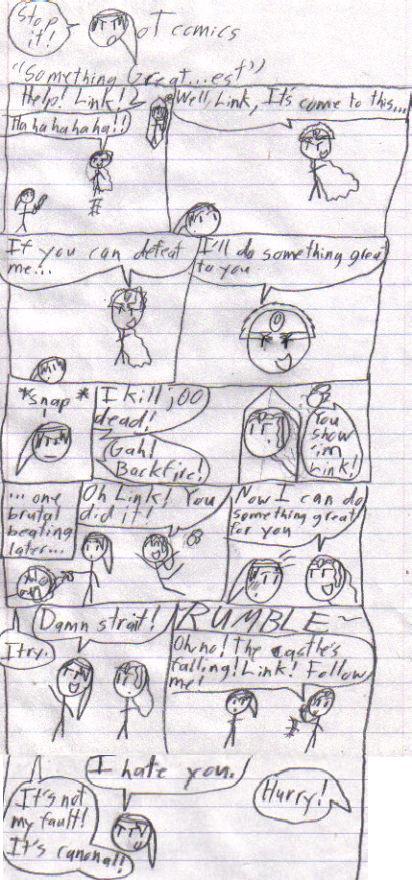 Stop
it!
oT comics
"Something Great...est"
Help! Link!
Ha ha ha ha ha!!
Well, Link, It's come to this...
If you can defeat
me...
I'll do something great
to you.
*snap*
I kill joo
dead!
Gah!
Backfire!
You
show
'im
Link!
...one
brutal
beating
later...
Oh Link! You
did it!
Now I can do
something great
for you
Damn strait!
I try.
RUMBLE~
Oh no! The castle's
falling! Link! Follow
me!
I hate you.
It's not
my fault!
It's canonal!
Hurry!